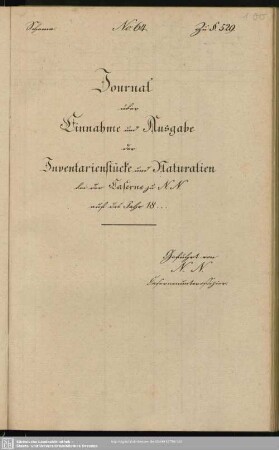 Schema No 64. Zu § 529.
Journal
über
Einnahme und Ausgabe
der
Inventarienstücke und Naturalien
bei der Caserne zu N. N.
auf das Jahr 18...
Geführt von
N. N.
Casernenunteroffizier